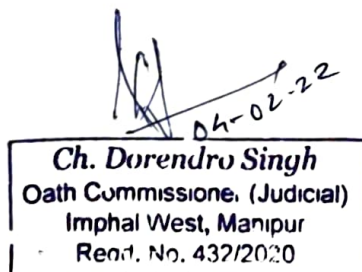 04-02-22
Ch. Dorendro Singh
Oath Commissioner (Judicial)
Imphal West, Manipur
Regd. No. 432/2020